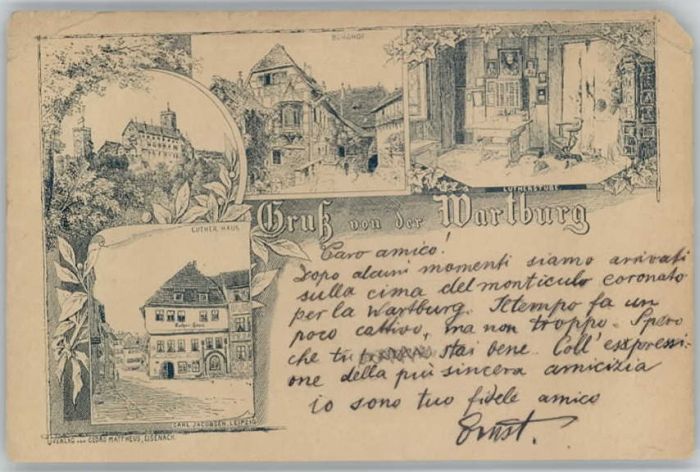 BURGHOF
LUTHERSTUBE
LUTHER HAUS
Gruß von der Wartburg
Caro amico!
Dopo alcuni momenti siamo arrivati
sulla cima del monticulo coronato
per la Wartburg. Il tempo fa un
poco cattivo, ma non troppo. Spero
che tu stai bene. Coll' esspressi-
one della più sincera amicizia
io sono tuo fidele amico
Ernst.
Luther-Haus
CARL JACOBSEN LEIPZIG
VERLAG VON GEORG MATTHEUS, EISENACH.